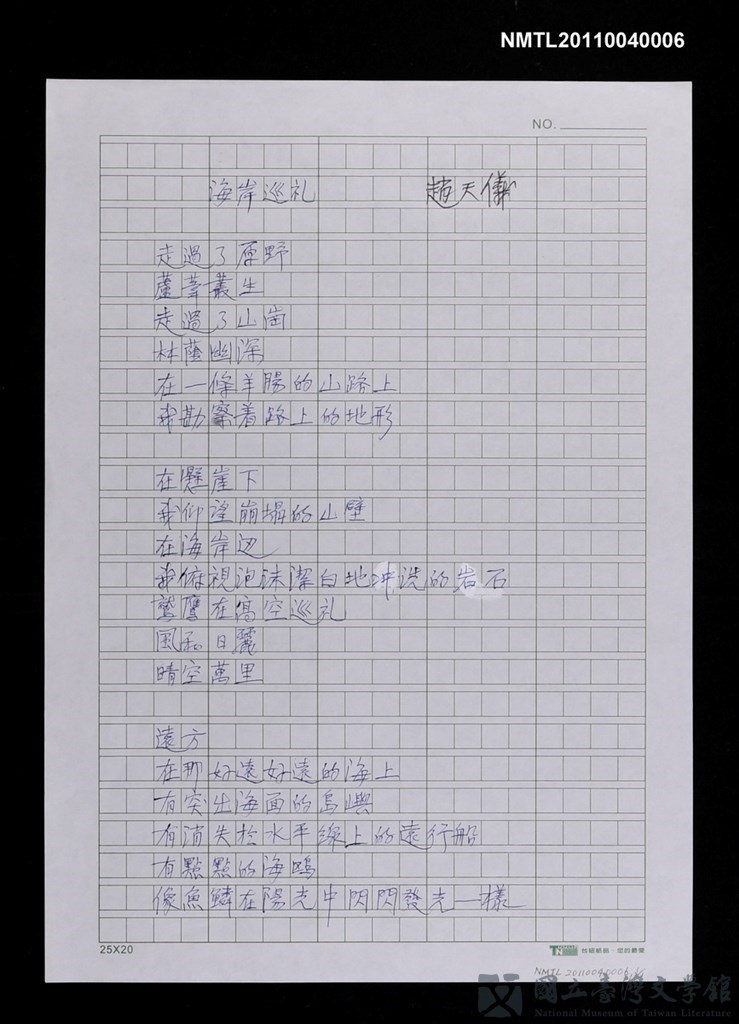 NMTL20110040006
NO.
海岸巡礼　趙天儀
走過了原野
蘆葦叢生
走過了山崗
林蔭幽深
在一條羊腸的山路上
我勘察着路上的地形
在懸崖下
我仰望崩塌的山壁
在海岸边
我俯視泡沫潔白地冲洗的岩石
鷲鷹在高空巡礼
風和日麗
晴空萬里
遠方
在那好遠好遠的海上
有突出海面的島嶼
有消失於水平線上的遠行船
有點點的海鷗
像魚鱗在陽光中閃閃發光一樣
25X20
NMTL20110040006
國立臺灣文學館
National Museum of Taiwan Literature